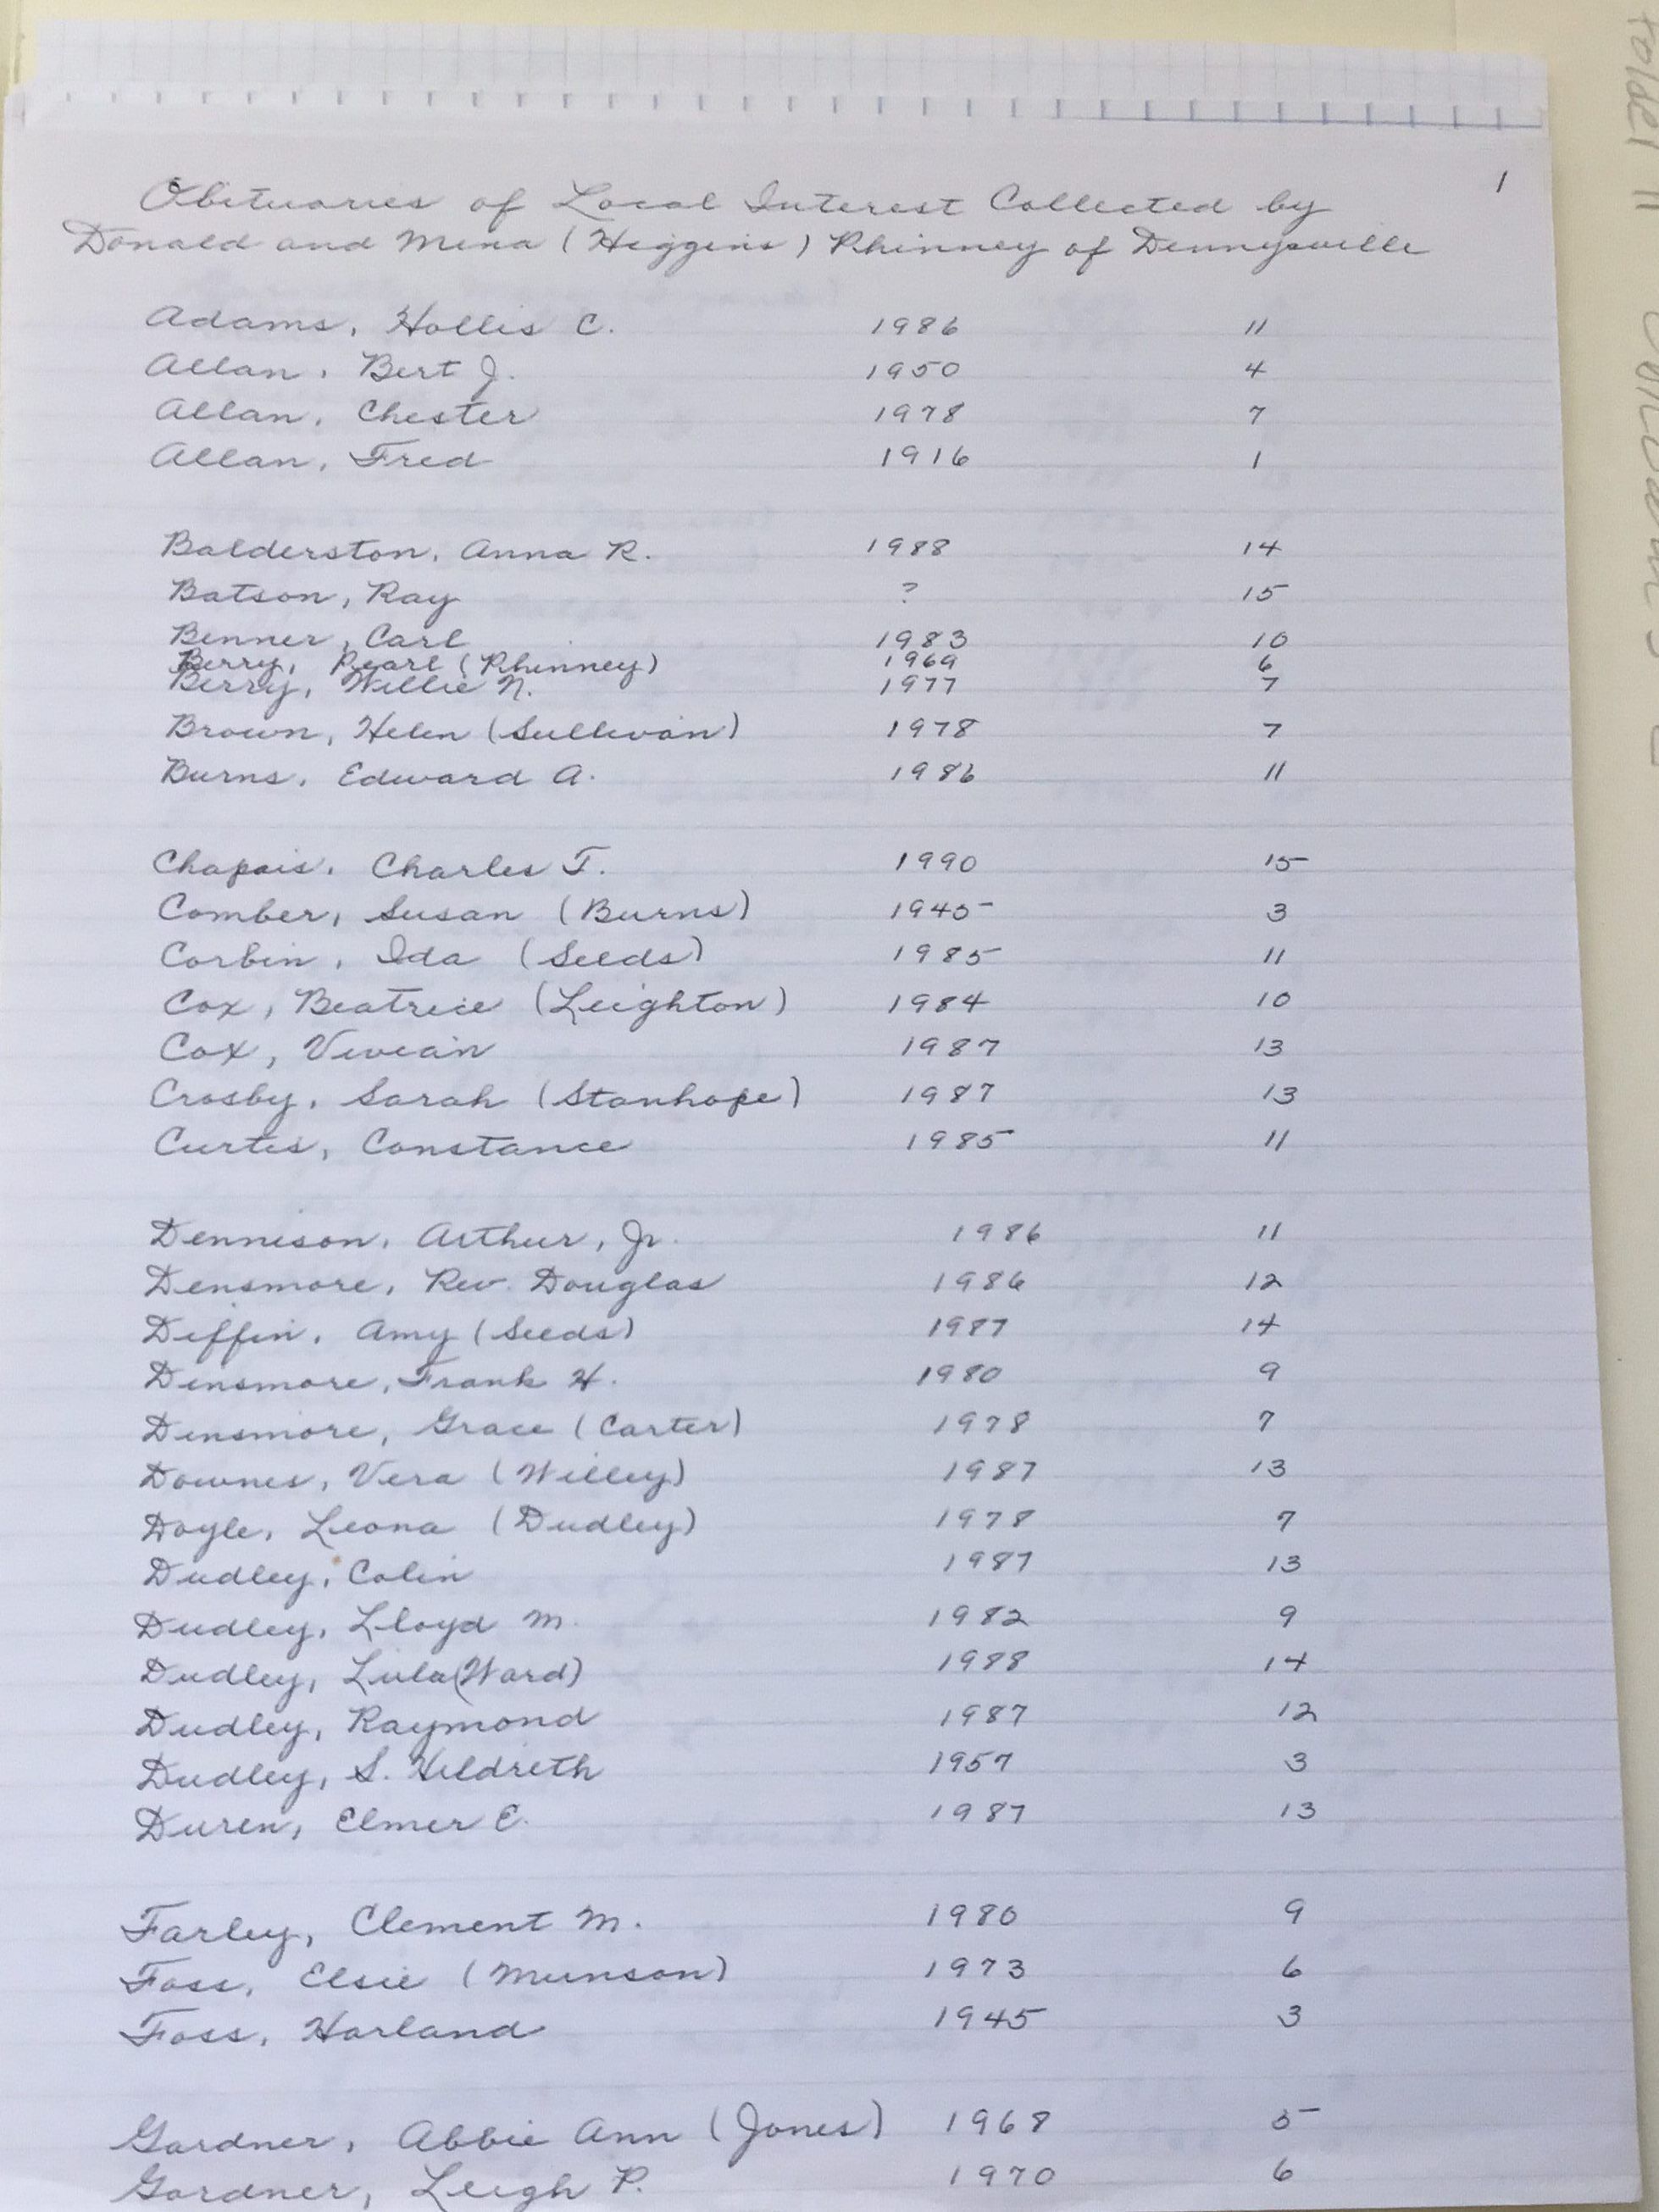 1
Obituaries of Local Interest Collected by
Donald and Mena (Higgins) Phinney of Dennysville
Adams, Hollis C. 1986 11
Allan, Bert J. 1950 4
Allan, Chester 1978 7
Allan, Fred 1916 1
Balderston, Anna R. 1988 14
Batson, Ray ? 15
Benner, Carl 1983 10
Berry, Pearl (Phinney) 1969 6
Berry, Willie N. 1977 7
Brown, Helen (Sullivan) 1978 7
Burns, Edward A. 1986 11
Chapais, Charles T. 1990 15
Comber, Susan (Burns) 1945 3
Corbin, Ida (Seeds) 1985 11
Cox, Beatrice (Leighton) 1984 10
Cox, Vivian 1987 13
Crosby, Sarah (Stanhope) 1987 13
Curtis, Constance 1985 11
Dennison, Arthur, Jr. 1986 11
Densmore, Rev. Douglas 1986 12
Diffin, Amy (Seeds) 1987 14
Dinsmore, Frank H. 1980 9
Dinsmore, Grace (Carter) 1978 7
Downes, Vera (Willey) 1987 13
Doyle, Leona (Dudley) 1978 7
Dudley, Colin 1987 13
Dudley, Lloyd M. 1982 9
Dudley, Lula (Ward) 1988 14
Dudley, Raymond 1987 12
Dudley, S. Hildreth 1957 3
Duren, Elmer E. 1987 13
Farley, Clement M. 1980 9
Foss, Elsie (Munson) 1973 6
Foss, Harland 1945 3
Gardner, Abbie Ann (Jones) 1968 5
Gardner, Leigh P. 1970 6